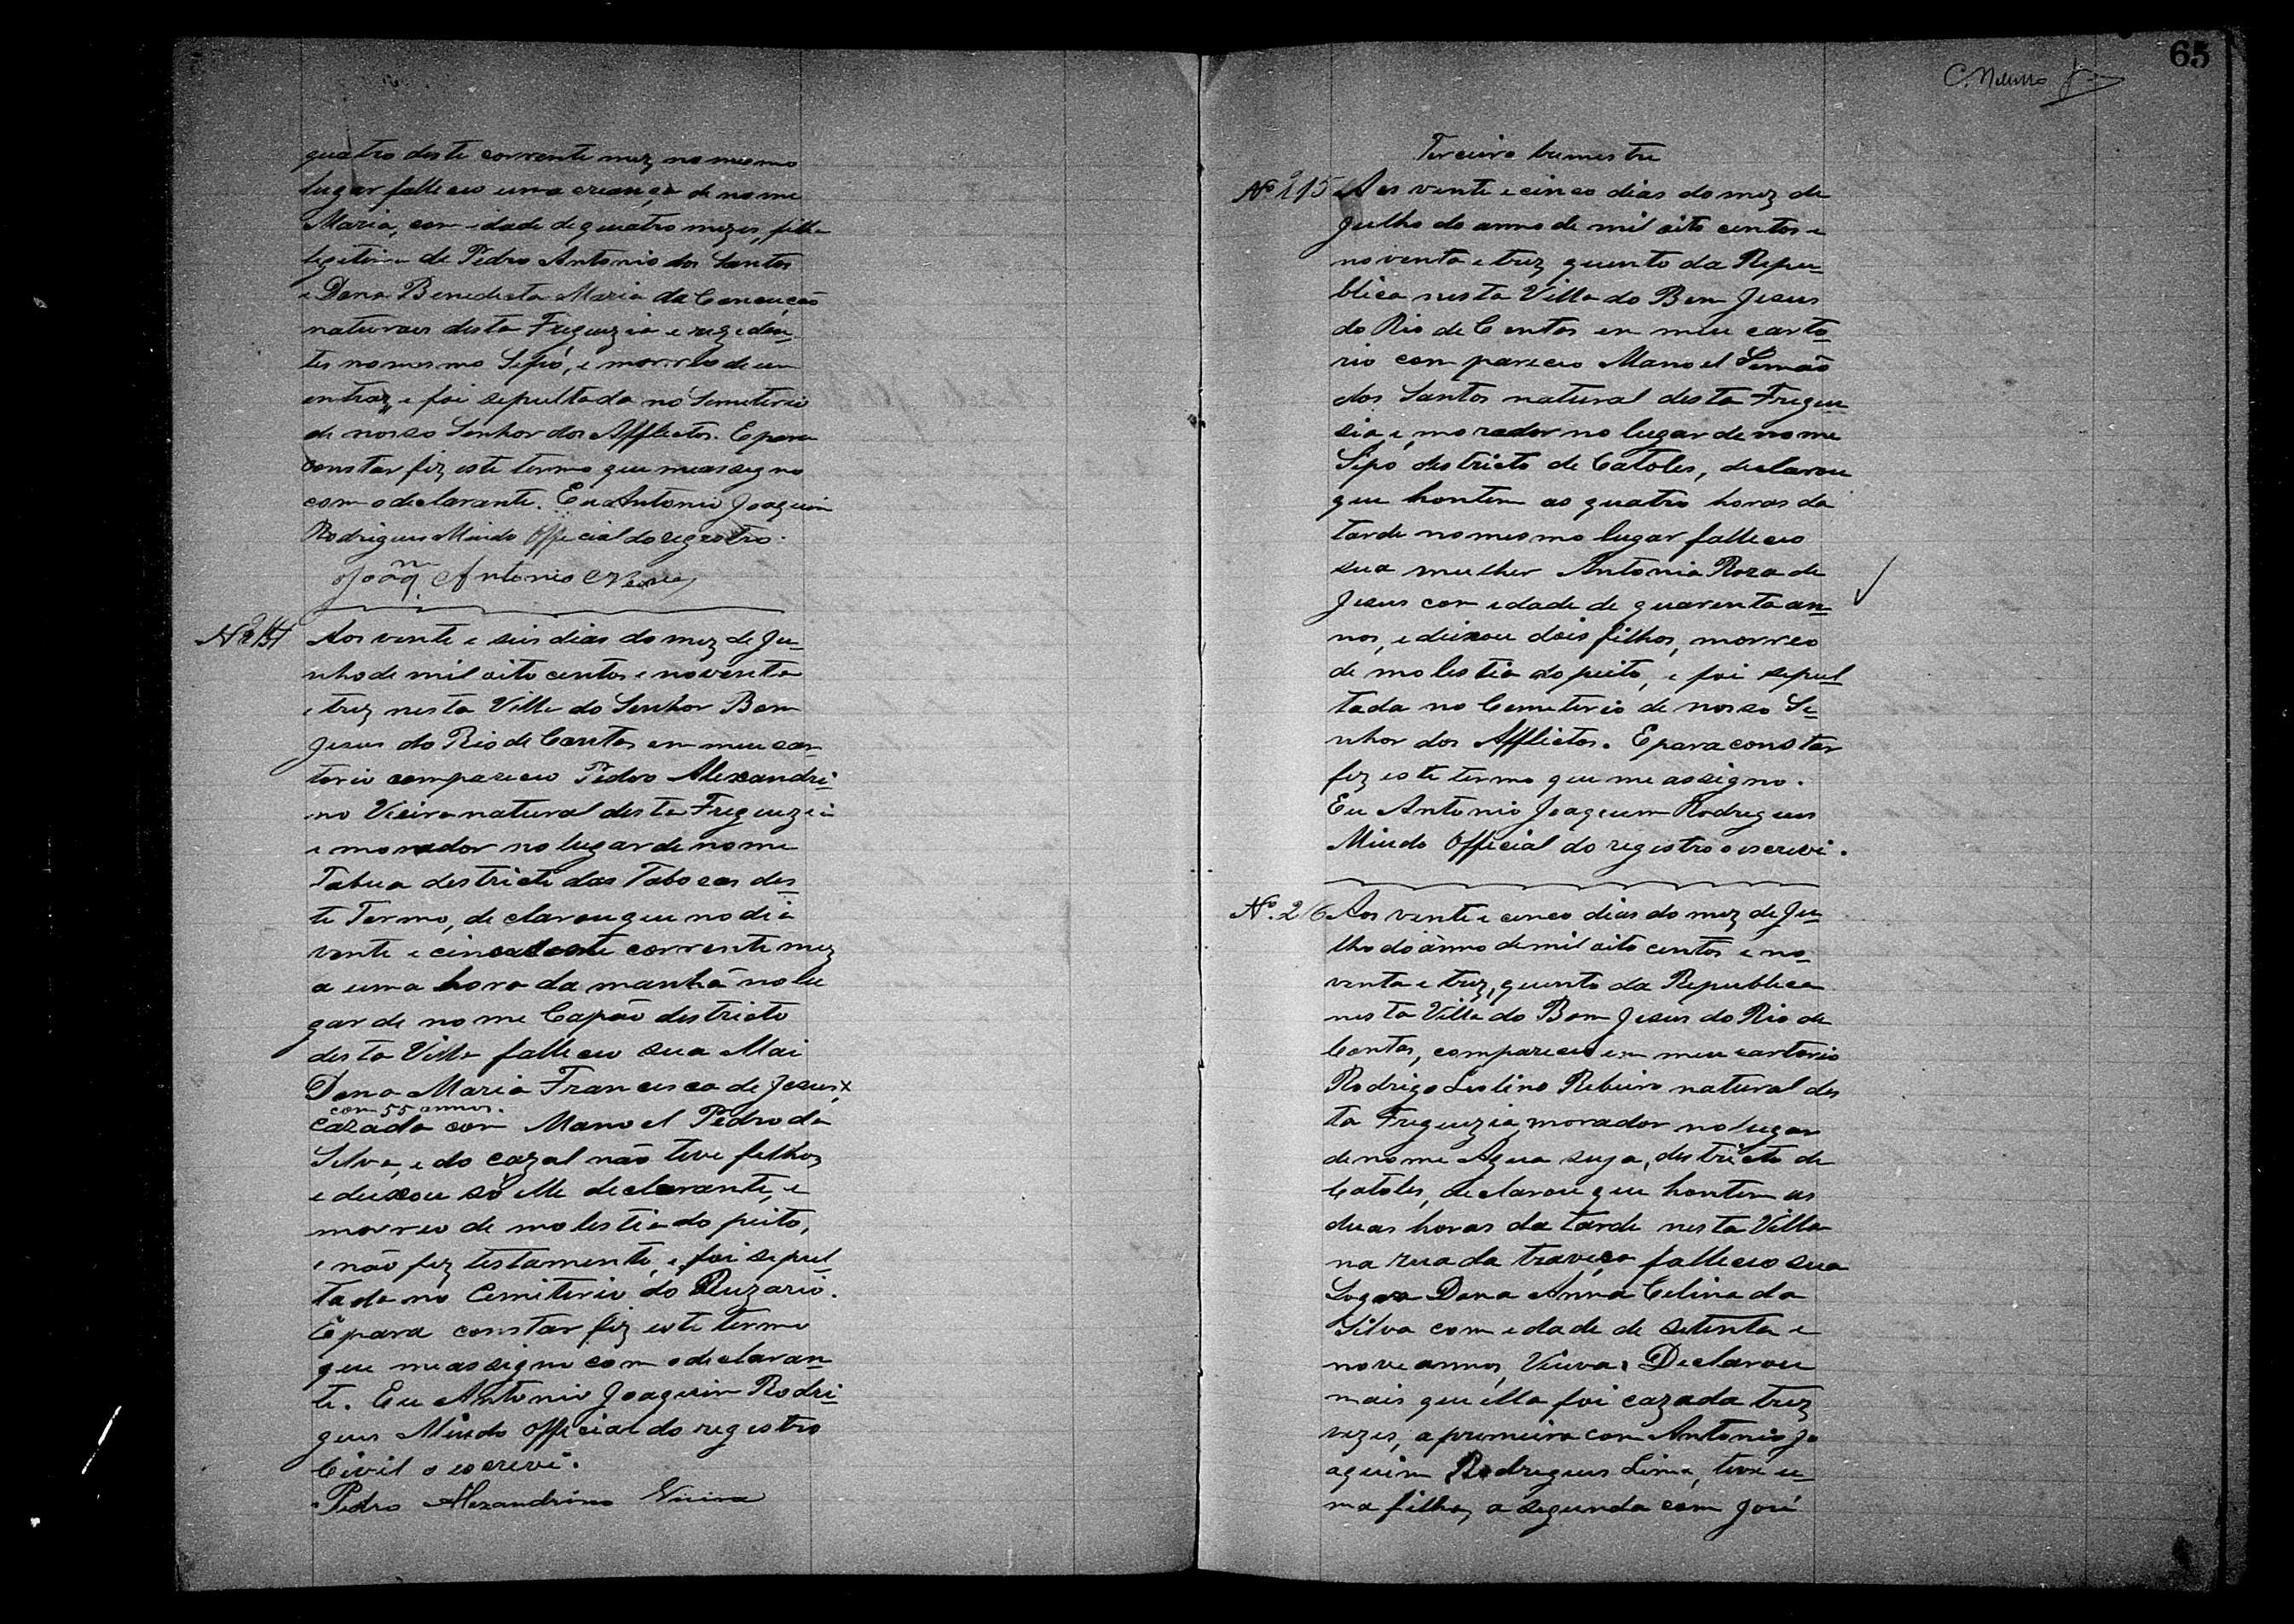 quatro deste corrente mez no mesmo
lugar falleceu uma creança de nome
Maria, com idade de quatro mezes, filha
legitima de Pedro Antonio dos Santos
e Dona Benedicta Maria da Conceição
naturaes desta Freguezia e rezeden_
tes no mesmo Sipó, e morreo de um
entraz, e foi sepultada no Semeterio
de nosso Senhor dos Afflictos. E para
constar fiz este termo que me assigno
com o declarante. Eu Antonio Joaquim
Rodrigues Miudo Official do registro.
Joaqm. Antonio
No 214 Aos vente e seis dias do mez de Ju_
nho de mil oito centos e noventa
e trez nesta Villa do Senhor Bom
Jesus do Rio de Contas em meu car
torio compareceu Pedro Alexandri_
no Vieira natural desta Freguezia
e morador no lugar de nome
Tabua destricto das Tabocas des_
te Termo, declarou que no dia
vente e cinco deste corrente mez
a uma hora da manhã no lu
gar de nome Capão destricto
desta Villa falleceu sua Mai
Dona Maria Francisca de Jesus, x
com 55 annos.
cazada com Manoel Pedro da
Silva, e do cazal não teve filhos
e deixou só elle declarante, e
morreo de molestia do peito,
e não fez testamento, e foi sepul_
tada no Cemiterio do Ruzario.
E para constar fiz este termo
que me assigno com o declaran_
te. Eu Antonio Joaquim Rodri_
gues Miudo Official do registro
Civil o escrevi.
Pedro Alexandrino Vieira
65
Terceiro trimestre
No. 215 Aos vente e cinco dias do mez de
Julho do anno de mil oito centos e
noventa e trez quinto da Repu_
blica nesta Villa do Bom Jesus
do Rio de Contas em meu carto_
rio compareceo Manoel Simão
dos Santos natural desta Fregue
sia, e morador no lugar de nome
Sipó destricto de Catoles, declarou
que hontem as quatro horas da
tarde no mesmo lugar falleceo
sua mulher Antonia Roza de
Jesus com edade de quarenta an_
nos, e deixou dois filhos, morreo
de molestia do peito, e foi sepul_
tada no Cemeterio de nosso Se_
nhor dos Afflictos. E para constar
fiz este termo que me assigno.
Eu Antonio Joaquim Rodrigues
Miudo Official do registro o escrevi.
No. 216 Aos vente e cinco dias do mez de Ju_
lho do anno de mil oito centos e no_
venta e trez, quinto da Republica
nesta Villa do Bom Jesus do Rio de
Contas, compareceo em meu cartorio
Rodrigo Leolino Ribeiro natural des
ta Freguezia, morador no lugar
de nome Agua suja, destricto de
Catoles, declarou que hontem as
duas horas da tarde nesta Villa
na rua da traveça falleceo sua
Sogra Dona Anna Celina da
Silva com edade de setenta e
nove annos, Viuva. Declarou
mais que ella foi cazada trez
vezes, a primeira com Antonio Jo
aquim Rodrigues Lima, teve u_
ma filha, a segunda com José